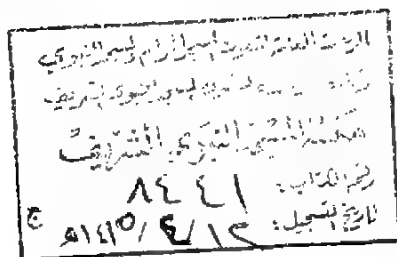 الرئاسة العامة لشئون المسجد الحرام والمسجد النبوي
وكالة لشئون المسجد النبوي الشريف
مكتبة المسجد النبوي الشريف
رقم الكتاب: ٨٤٤١
تاريخ التسجيل: ١٢/٤/١٤١٥هـ
ج